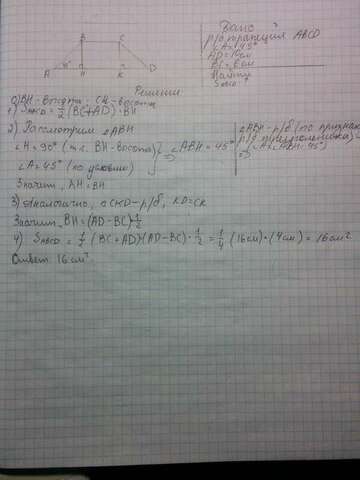 B C
A 45° H K D
Дано
р/б трапеция ABCD
∠A=45°
AD=
BC=6см
Найти
S ABCD - ?
Решение
0) BH - высота. CK - высота
1) S ABCD = 1/2 (BC+AD)·BH
2) Рассмотрим △ABH
∠H = 90° (т.к. BH-высота)
∠A = 45° (по условию)
⇒ ∠ABH = 45° ⇒
△ABH - р/б (по признаку
р/б треугольника)
(∠A=∠ABH=45°)
Значит, AH = BH
3) Аналогично, △CKD - р/б, KD=CK
Значит, BH = (AD-BC)·1/2
4) S ABCD = 1/2 (BC+AD)·(AD-BC)·1/2 = 1/4 (16см)·(4см) = 16см²
Ответ: 16см²